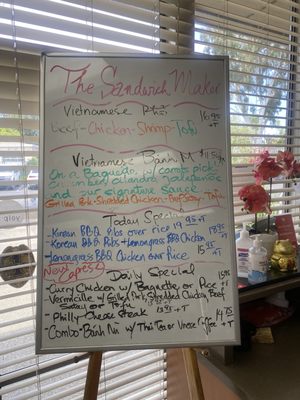 The Sandwich Maker
Vietnamese Pho 16.95 +T
Beef-Chicken-Shrimp-Tofu
Vietnamese Banh Mi $11.50 +T
On a Baguette, w/ comb pick
cucumber, cilantro
and our signature Sauce
Grilled Pork-Shredded Chicken-Beef stew-Tofu
Today Special
-Korean BBQ Ribs over rice 19.95 +T
-Korean BBQ Ribs + Lemongrass BBQ Chicken
-Lemongrass BBQ Chicken over Rice 15.95 +T
Daily Special
Curry Chicken w/ Baguette or Rice
Vermicelli w/ Grilled Pork, Shredded Chicken, Beef
Stew or Tofu
-Philly Cheese Steak 13.95 +T
-Combo-Bánh Mi w/ Thai Tea or Vnese Coffee +T